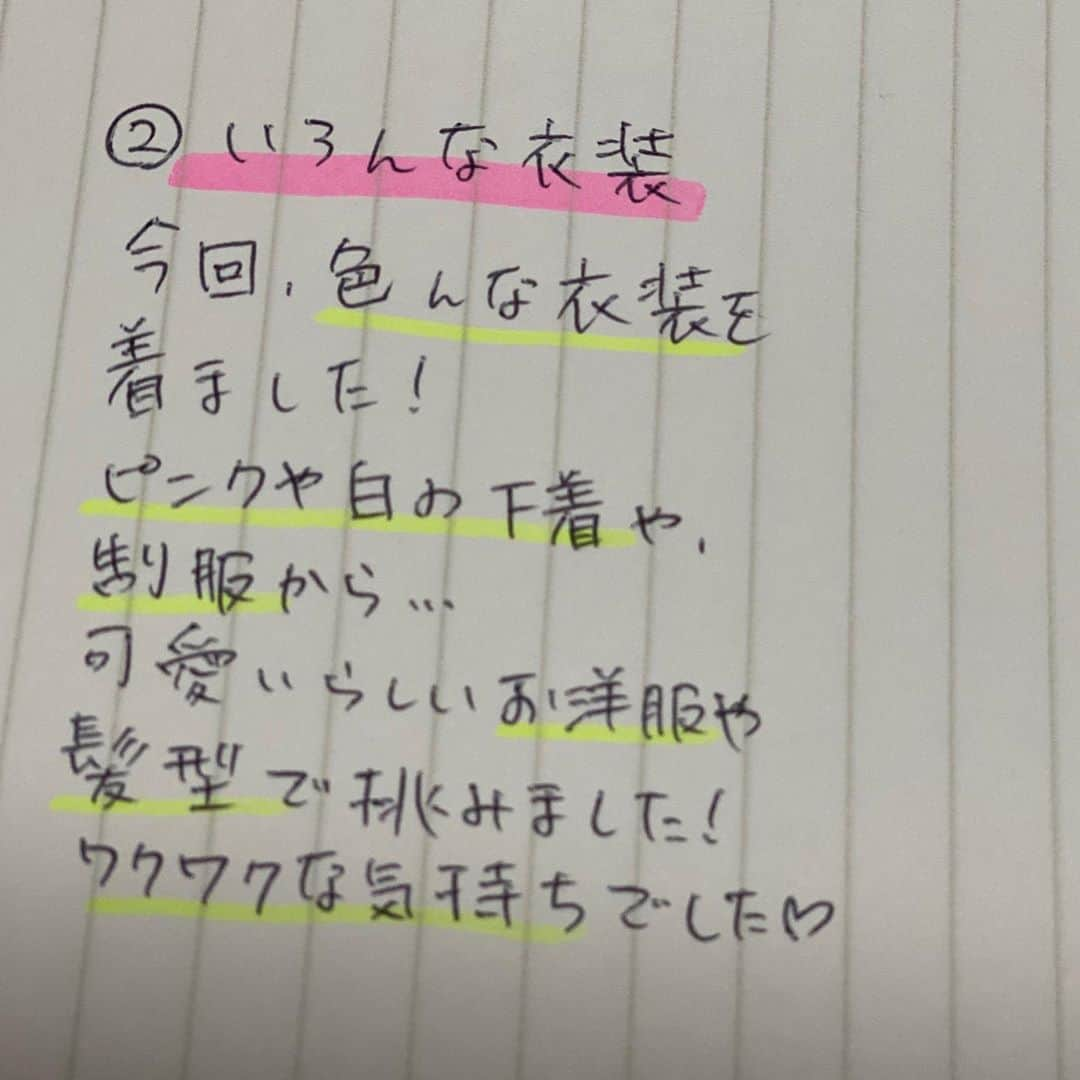 ② いろんな衣装
今回、色んな衣装を
着ました!
ピンクや白の下着や、
制服から...
可愛いらしいお洋服や
髪型で挑みました!
ワクワクな気持ちでした♡